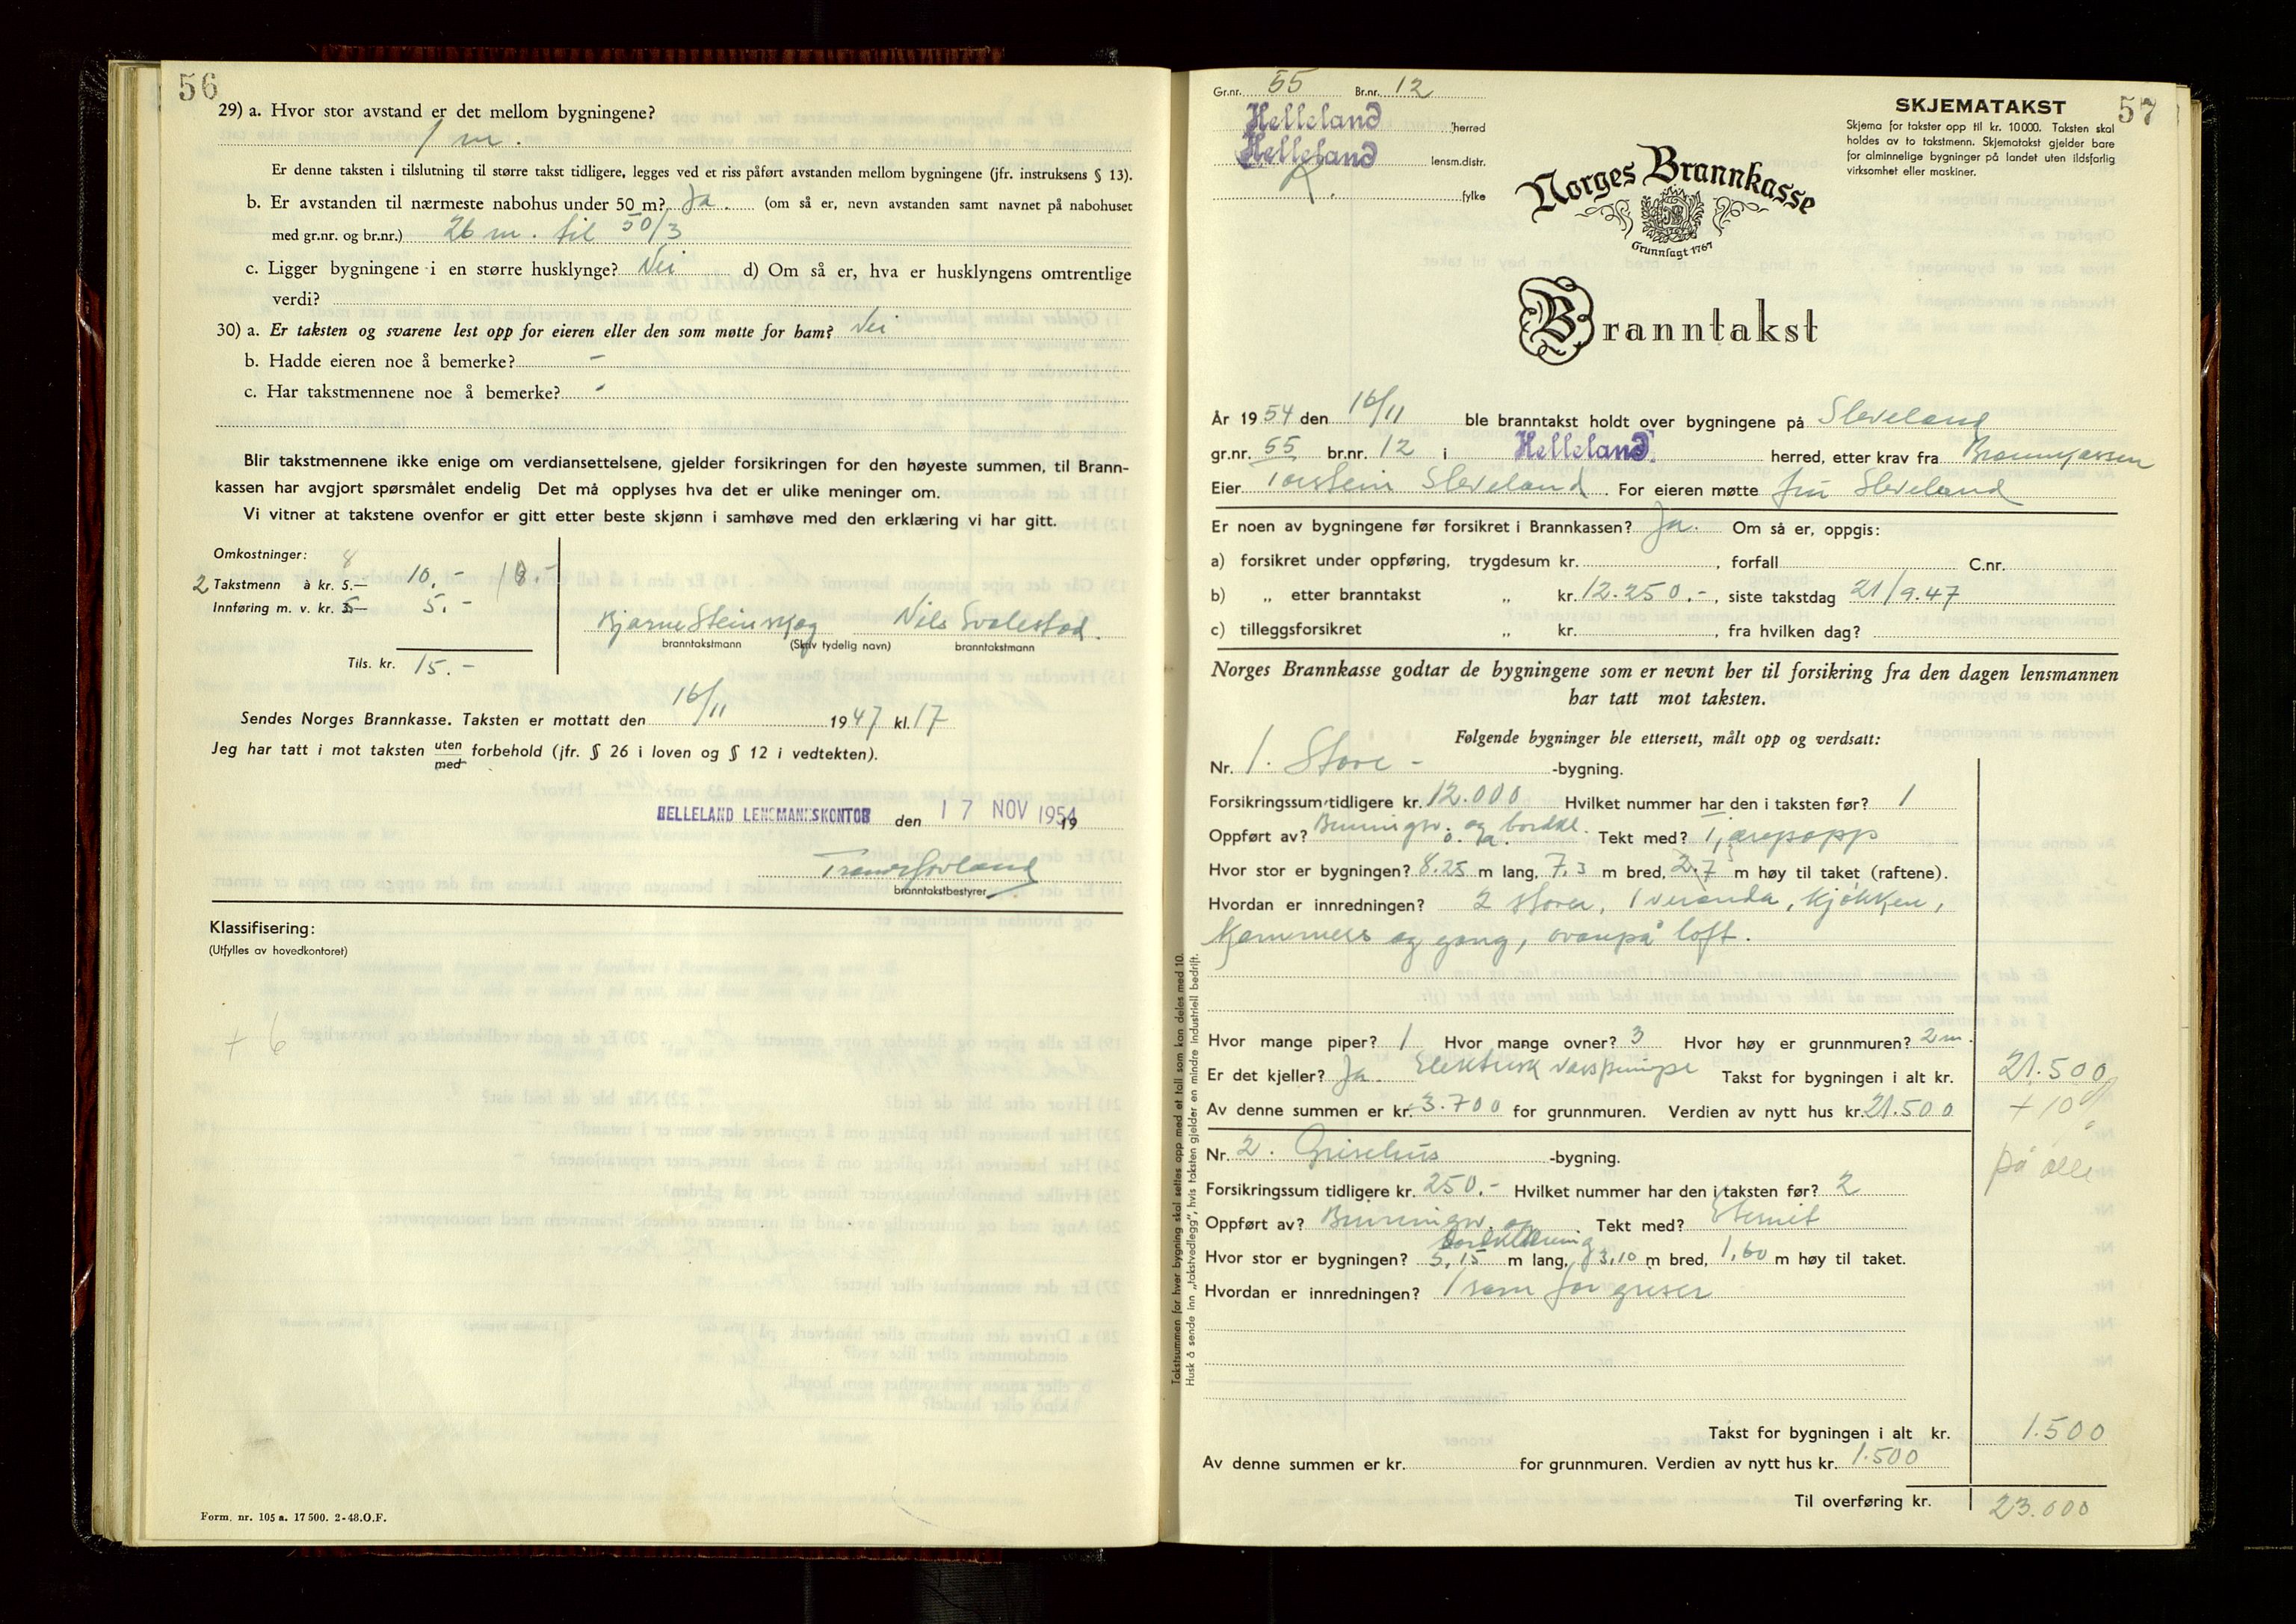 56
29) a. Hvor stor avstand er det mellom bygningene?
1 m.
Er denne taksten i tilslutning til større takst tidligere, legges ved et riss påført avstanden mellom bygningene (jfr. instruksens § 13).
b. Er avstanden til nærmeste nabohus under 50 m? Ja. (om så er, nevn avstanden samt navnet på nabohuset
med gr.nr. og br.nr.) 26 m. til 50/3
c. Ligger bygningene i en større husklynge? Nei d) Om så er, hva er husklyngens omtrentlige
verdi?
30) a. Er taksten og svarene lest opp for eieren eller den som møtte for ham? Nei
b. Hadde eieren noe å bemerke? -
c. Har takstmennene noe å bemerke? -
Blir takstmennene ikke enige om verdiansettelsene, gjelder forsikringen for den høyeste summen, til Brann-
kassen har avgjort spørsmålet endelig Det må opplyses hva det er ulike meninger om.
Vi vitner at takstene ovenfor er gitt etter beste skjønn i samhøve med den erklæring vi har gitt.
Omkostninger: 8
2 Takstmenn à kr. 5.— 10.- 18.-
Innføring m. v. kr. 5.-
Bjarne Steinskog Nils Svalestad.
branntakstmann (Skriv tydelig navn) branntakstmann
Tils. kr. 15.-
Sendes Norges Brannkasse. Taksten er mottatt den 16/11 1947 kl. 17
Jeg har tatt i mot taksten uten forbehold (jfr. § 26 i loven og § 12 i vedtekten).
med
HELLELAND LENSMANNSKONTOR den 17 NOV 1954 19
branntakstbestyrer
Klassifisering:
(Utfylles av hovedkontoret)
+ 6
Form. nr. 105 a. 17 500. 2-48.O.F.
57
Gr.nr. 55 Br.nr. 12
Helleland herred
Helleland lensm.distr.
R. fylke
SKJEMATAKST
Skjema for takster opp til kr. 10000. Taksten skal
holdes av to takstmenn. Skjematakst gjelder bare
for alminnelige bygninger på landet uten ildsfarlig
virksomhet eller maskiner.
Norges Brannkasse
Grunnlagt 1767
Branntakst
År 1954 den 16/11 ble branntakst holdt over bygningene på Sleveland
gr.nr. 55 br.nr. 12 i Helleland herred, etter krav fra Brannkassen
Eier Torstein Sleveland. For eieren møtte fru Sleveland
Er noen av bygningene før forsikret i Brannkassen? Ja. Om så er, oppgis:
a) forsikret under oppføring, trygdesum kr. , forfall C.nr.
b) „ etter branntakst „ kr. 12.250.-, siste takstdag 21/9.47
c) tilleggsforsikret „ kr. , fra hvilken dag?
Norges Brannkasse godtar de bygningene som er nevnt her til forsikring fra den dagen lensmannen
har tatt mot taksten.
Følgende bygninger ble ettersett, målt opp og verdsatt:
Nr. 1. Stove- -bygning.
Forsikringssum tidligere kr. 12.000 Hvilket nummer har den i taksten før? 1
Oppført av? Binningsv. og bordkl. o.a. Tekt med? Tjærepapp
Hvor stor er bygningen? 8.25 m lang, 7,3 m bred, 2.7 m høy til taket (raftene).
Hvordan er innredningen? 2 stover, 1 veranda, kjøkken,
kammers og gang, ovanpå loft.
Hvor mange piper? 1 Hvor mange ovner? 3 Hvor høy er grunnmuren? 2 m.
Er det kjeller? Ja. Elektrisk vasspumpe Takst for bygningen i alt kr. 21.500
Av denne summen er kr. 3.700 for grunnmuren. Verdien av nytt hus kr. 21.500
+ 10
på alle
Nr. 2. Grisehus -bygning.
Forsikringssum tidligere kr. 250.- Hvilket nummer har den i taksten før? 2
Oppført av? Binningsv. og bordkledning Tekt med? Eternit
Hvor stor er bygningen? 5,15 m lang, 3,10 m bred, 1,60 m høy til taket.
Hvordan er innredningen? 1 rom for griser
Takst for bygningen i alt kr. 1.500
Av denne summen er kr. for grunnmuren. Verdien av nytt hus kr. 1.500
Til overføring kr. 23.000
Takstsummen for hver bygning skal settes opp med et tall som kan deles med 10.
Husk å sende inn „takstvedlegg”, hvis taksten gjelder en mindre industriell bedrift.